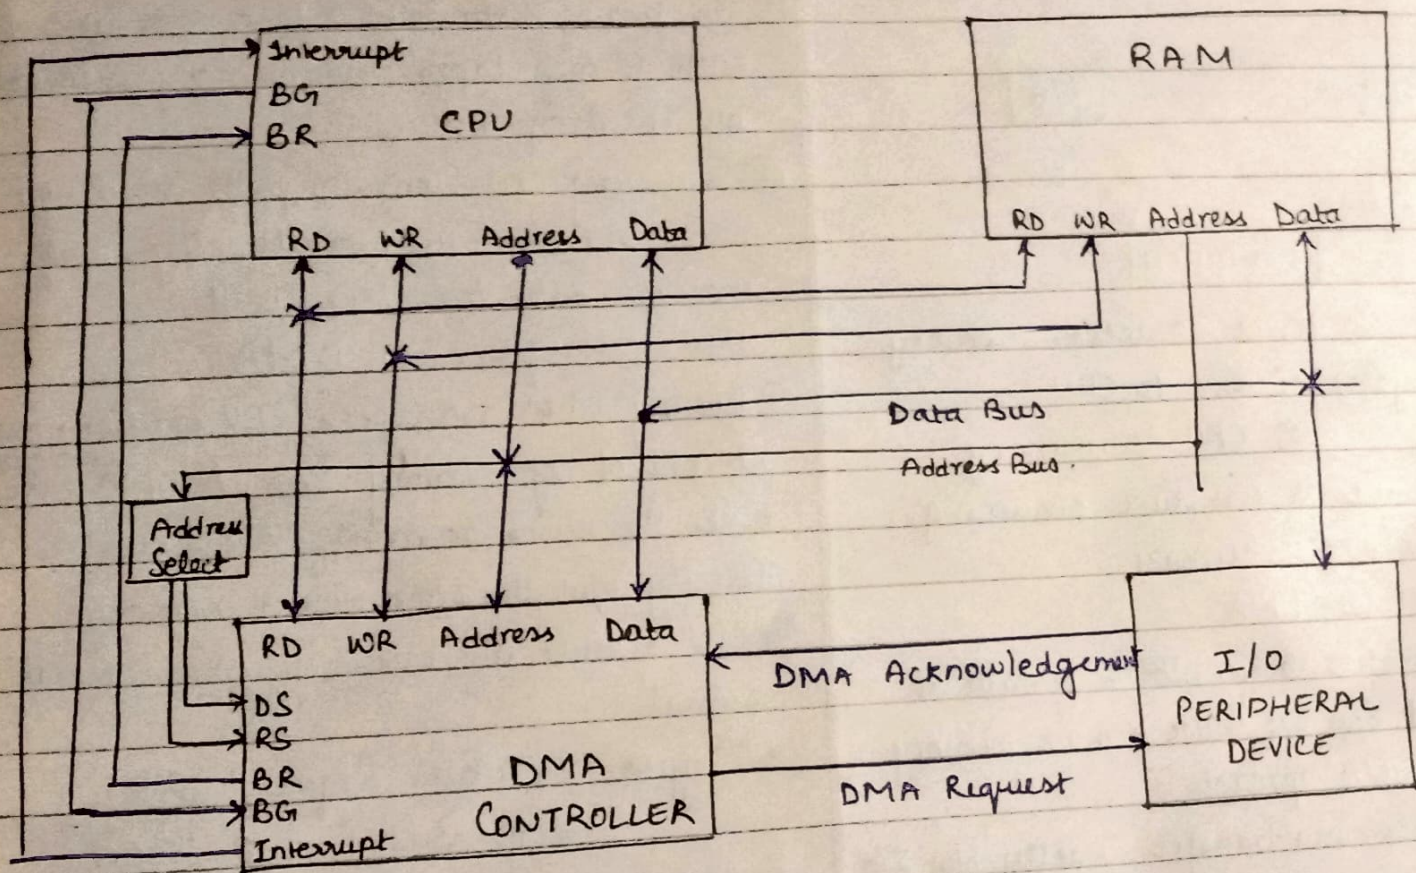 Interrupt
BG
BR
CPU
RD WR Address Data
RAM
RD WR Address Data
Data Bus
Address Bus.
Address
Select
RD WR Address Data
DS
RS
BR
BG
Interrupt
DMA
CONTROLLER
DMA Acknowledgement
DMA Request
I/O
PERIPHERAL
DEVICE